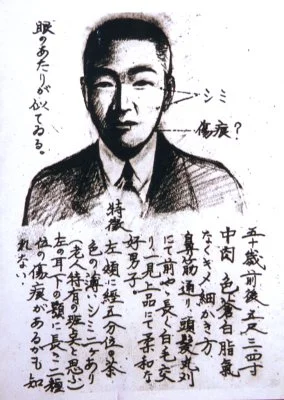 眼のあたりが
似てゐる。
シミ
傷痕?
五十歳前後 五尺三四寸
中肉 色蒼白 脂氣
なくキメ細かき方、
鼻筋通り 頭髪丸刈
にて前やゝ長く白毛交
り、一見上品にて柔和な
好男子。
特徴
左頬に経五分位の茶
色の薄いシミ二ケあり
(老人特有の斑点と思ふ)
左の耳下の顎に長さ二糎
位の傷痕があるかも知
れない